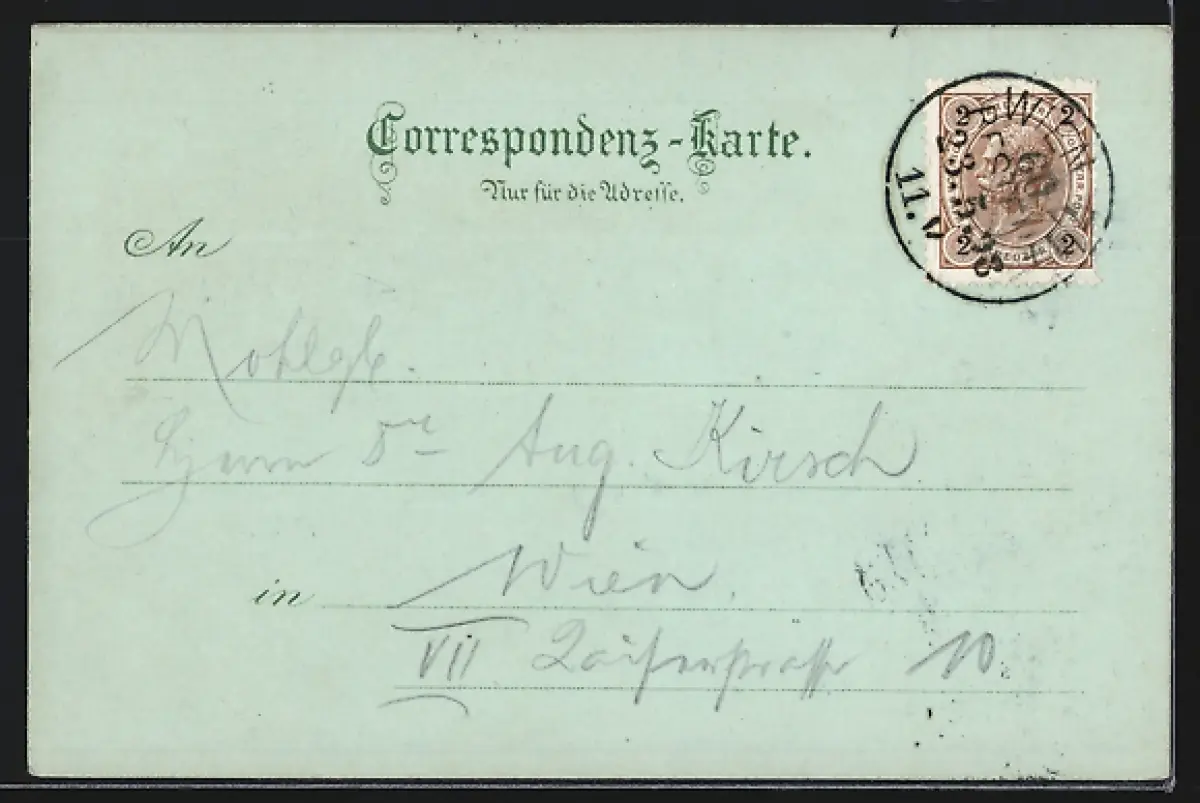 Correspondenz-Karte.
Nur für die Adresse.
An
Herrn Dr Aug. Kirsch
in Wien.
VII Kaiserstrasse 10.
2 2
2 2
23.5.98
11.V